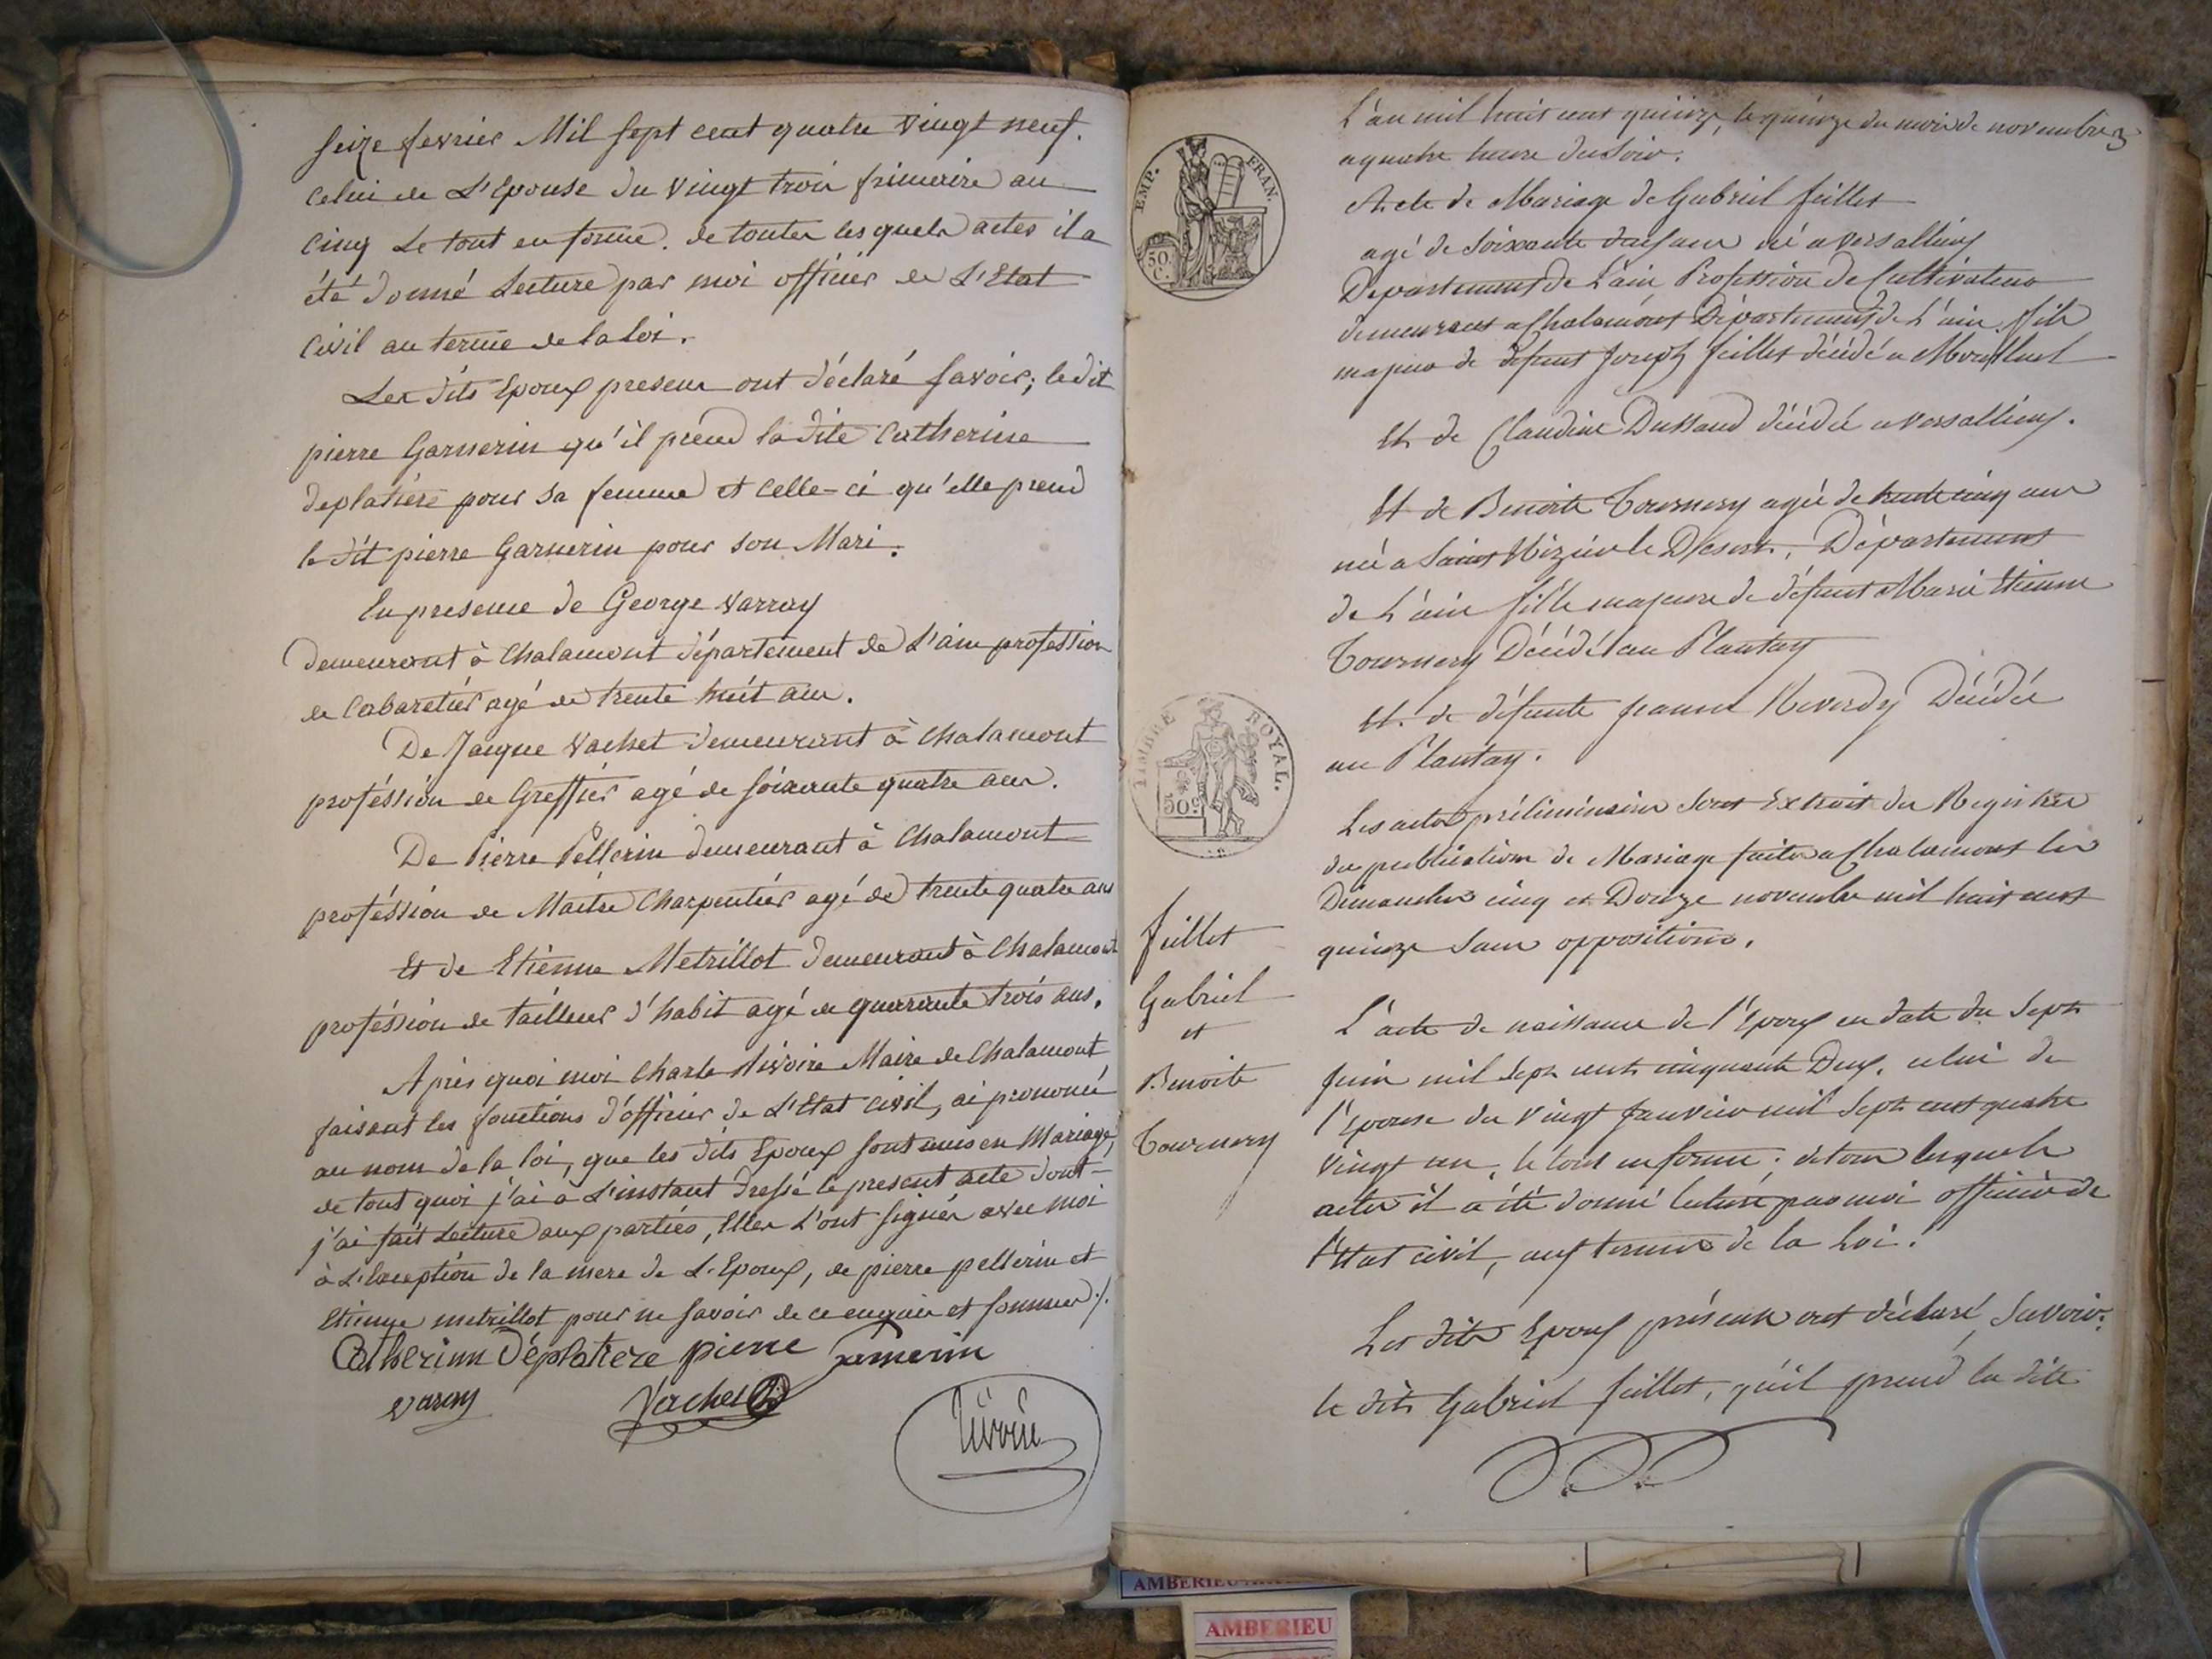 seize fevrier Mil sept cent quatre vingt neuf.
Celui de L'Epouse du vingt trois frimaire an
Cinq Le tout en forme. de toutes les quels actes il a
été donné Lecture par moi officier de L'Etat
Civil au terme de la loi.
Les dits Epoux presens ont déclaré savoir; le dit
pierre Garnerin qu'il prend la dite Catherine
deplatiere pour sa femme et celle-ci qu'elle prend
le dit pierre Garnerin pour son Mari.
En presence de George Varray
demeurant à Chalamont département de L'ain profession
de Cabaretier agé de trente huit ans.
De Jacque Vachet demeurant à Chalamont
proféssion de Greffier agé de soixante quatre ans.
De Pierre Pellerin demeurant à Chalamont
proféssion de Maitre Charpentier agé de trente quatre ans
Et de Etienne Metrillot demeurant à Chalamont
proféssion de tailleur d'habit agé de quarante trois ans.
Après quoi moi Charle Rivoire Maire de Chalamont
faisant les fonctions d'officier de L'Etat Civil, ai prononcé
au nom de la loi, que les dits Epoux sont unis en Mariage,
de tout quoi j'ai à L'instant dressé le present acte dont
j'ai fait Lecture aux parties, Elles L'ont signées avec moi
à L'Exception de la mere de L'Epoux, de pierre pellerin et
Etienne metrillot pour ne savoir de ce enquis et sommés ./.
Catherinn Déplatiere pierre Garnerin
Varay Vachet
Rivoire
EMP. FRAN.
50 C.
TIMBRE ROYAL.
50 c
L'an mil huit cent quinze, le quinze du mois de novembre
a quatre heure du soir.
Acte de Mariage de Gabriel Feillet
agé de soixante ans né a versallieux
Departement de L'ain, Profession de Cultivateur
demeurant a Chalamont Département de L'ain, fils
majeur de défunt Joseph Feillet décédé a Montluel
Et de Claudine Dussaud décédée a versallieux.
Et de Benoite Tournery agée de trente cinq ans
née a Saint Nizier le Desert, Département
de L'ain fille majeure de défunt Marie Etienne
Tournery Décédé au Plantay
Et de défunte jeanne Reverdy Décédée
au Plantay.
Les actes préliminaires sont Extrait du Registre
des publications de Mariage faites a Chalamont les
Dimanches cinq et Douze novembre mil huit cent
quinze sans oppositions.
L'acte de naissance de l'Epoux en date du Sept
juin mil sept cent cinquante Deux, celui de
l'Epouse du vingt Janvier mil sept cent quatre
vingt un, le tout en forme; de tous lesquels
actes il a été donné lecture par moi officier de
l'Etat civil, aux termes de la Loi.
Les dits Epoux présents ont déclaré, Savoir:
le dit Gabriel Feillet, qu'il prend la dite
Feillet
Gabriel
et
Benoite
Tournery
AMBERIEU
AMBERIEU